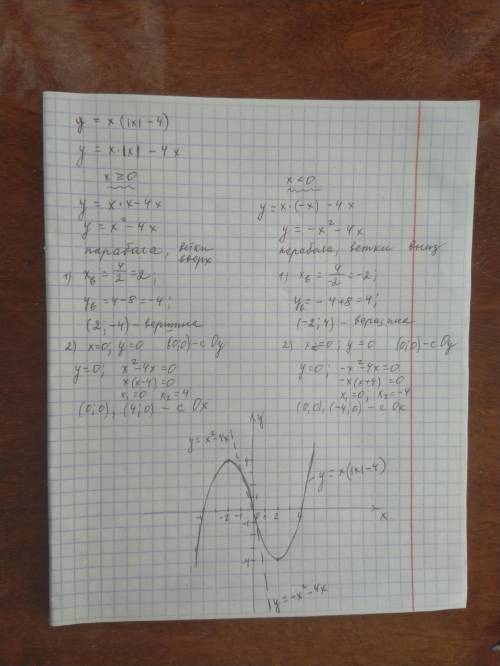 y = x(|x| - 4)
y = x·|x| - 4x
x ≥ 0
y = x·x - 4x
y = x² - 4x
парабола, ветки вверх
1) xв = 4/2 = 2;
yв = 4 - 8 = -4;
(2; -4) - вершина
2) x=0; y=0 (0;0) - с Oy
y=0; x² - 4x = 0
x(x-4) = 0
x₁=0 x₂=4
(0;0), (4;0) - с Ox
x < 0
y = x·(-x) - 4x
y = -x² - 4x
парабола, ветки вниз
1) xв = 4/-2 = -2;
yв = -4+8 = 4;
(-2; 4) - вершина
2) x=0; y=0 (0;0) - с Oy
y=0; -x² - 4x = 0
-x(x+4) = 0
x₁=0; x₂=-4
(0;0), (-4;0) - с Ox
y
y = x² - 4x
4
y = x(|x| - 4)
1
-4 -2 0 1 2 4 x
-1
-4
y = -x² - 4x